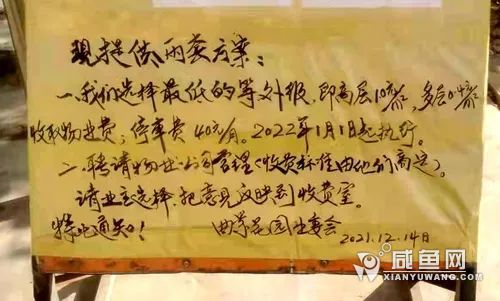 现提供两套方案：
一、我们选择最低的等外级，即高层1.0元/㎡，多层0.4元/㎡
收取物业费；停车费40元/月。2022年1月1日起执行。
二、聘请物业公司管理（收费标准由他们商定）。
请业主选择，把意见反映到收费室。
特此通知！ 花园业委会
2021.12.14日
咸鱼网
XIANYUWANG.COM